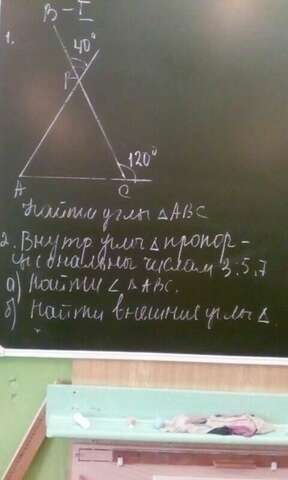 В - I
1.
40°
B
120°
A
C
Найти углы △ABC
2. Внутр углы △ пропор-
циональны числам 3.5.7
а) Найти ∠ △ABC.
б) Найти внешние углы △